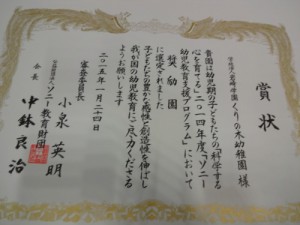 賞状
学校法人岩崎学園くりの木幼稚園 様
貴園は幼児期の子どもたちの「科学する
心を育てる」二〇一四年度「ソニー
幼児教育支援プログラム」において
奨励園
に選定されました
子どもたちの豊かな感性と創造性を伸ばし
我が国の幼児教育にご尽力くださる
ようお願いします
二〇一五年一月二十四日
審査委員長
小泉英明
公益財団法人 ソニー教育財団
会長
中鉢良治